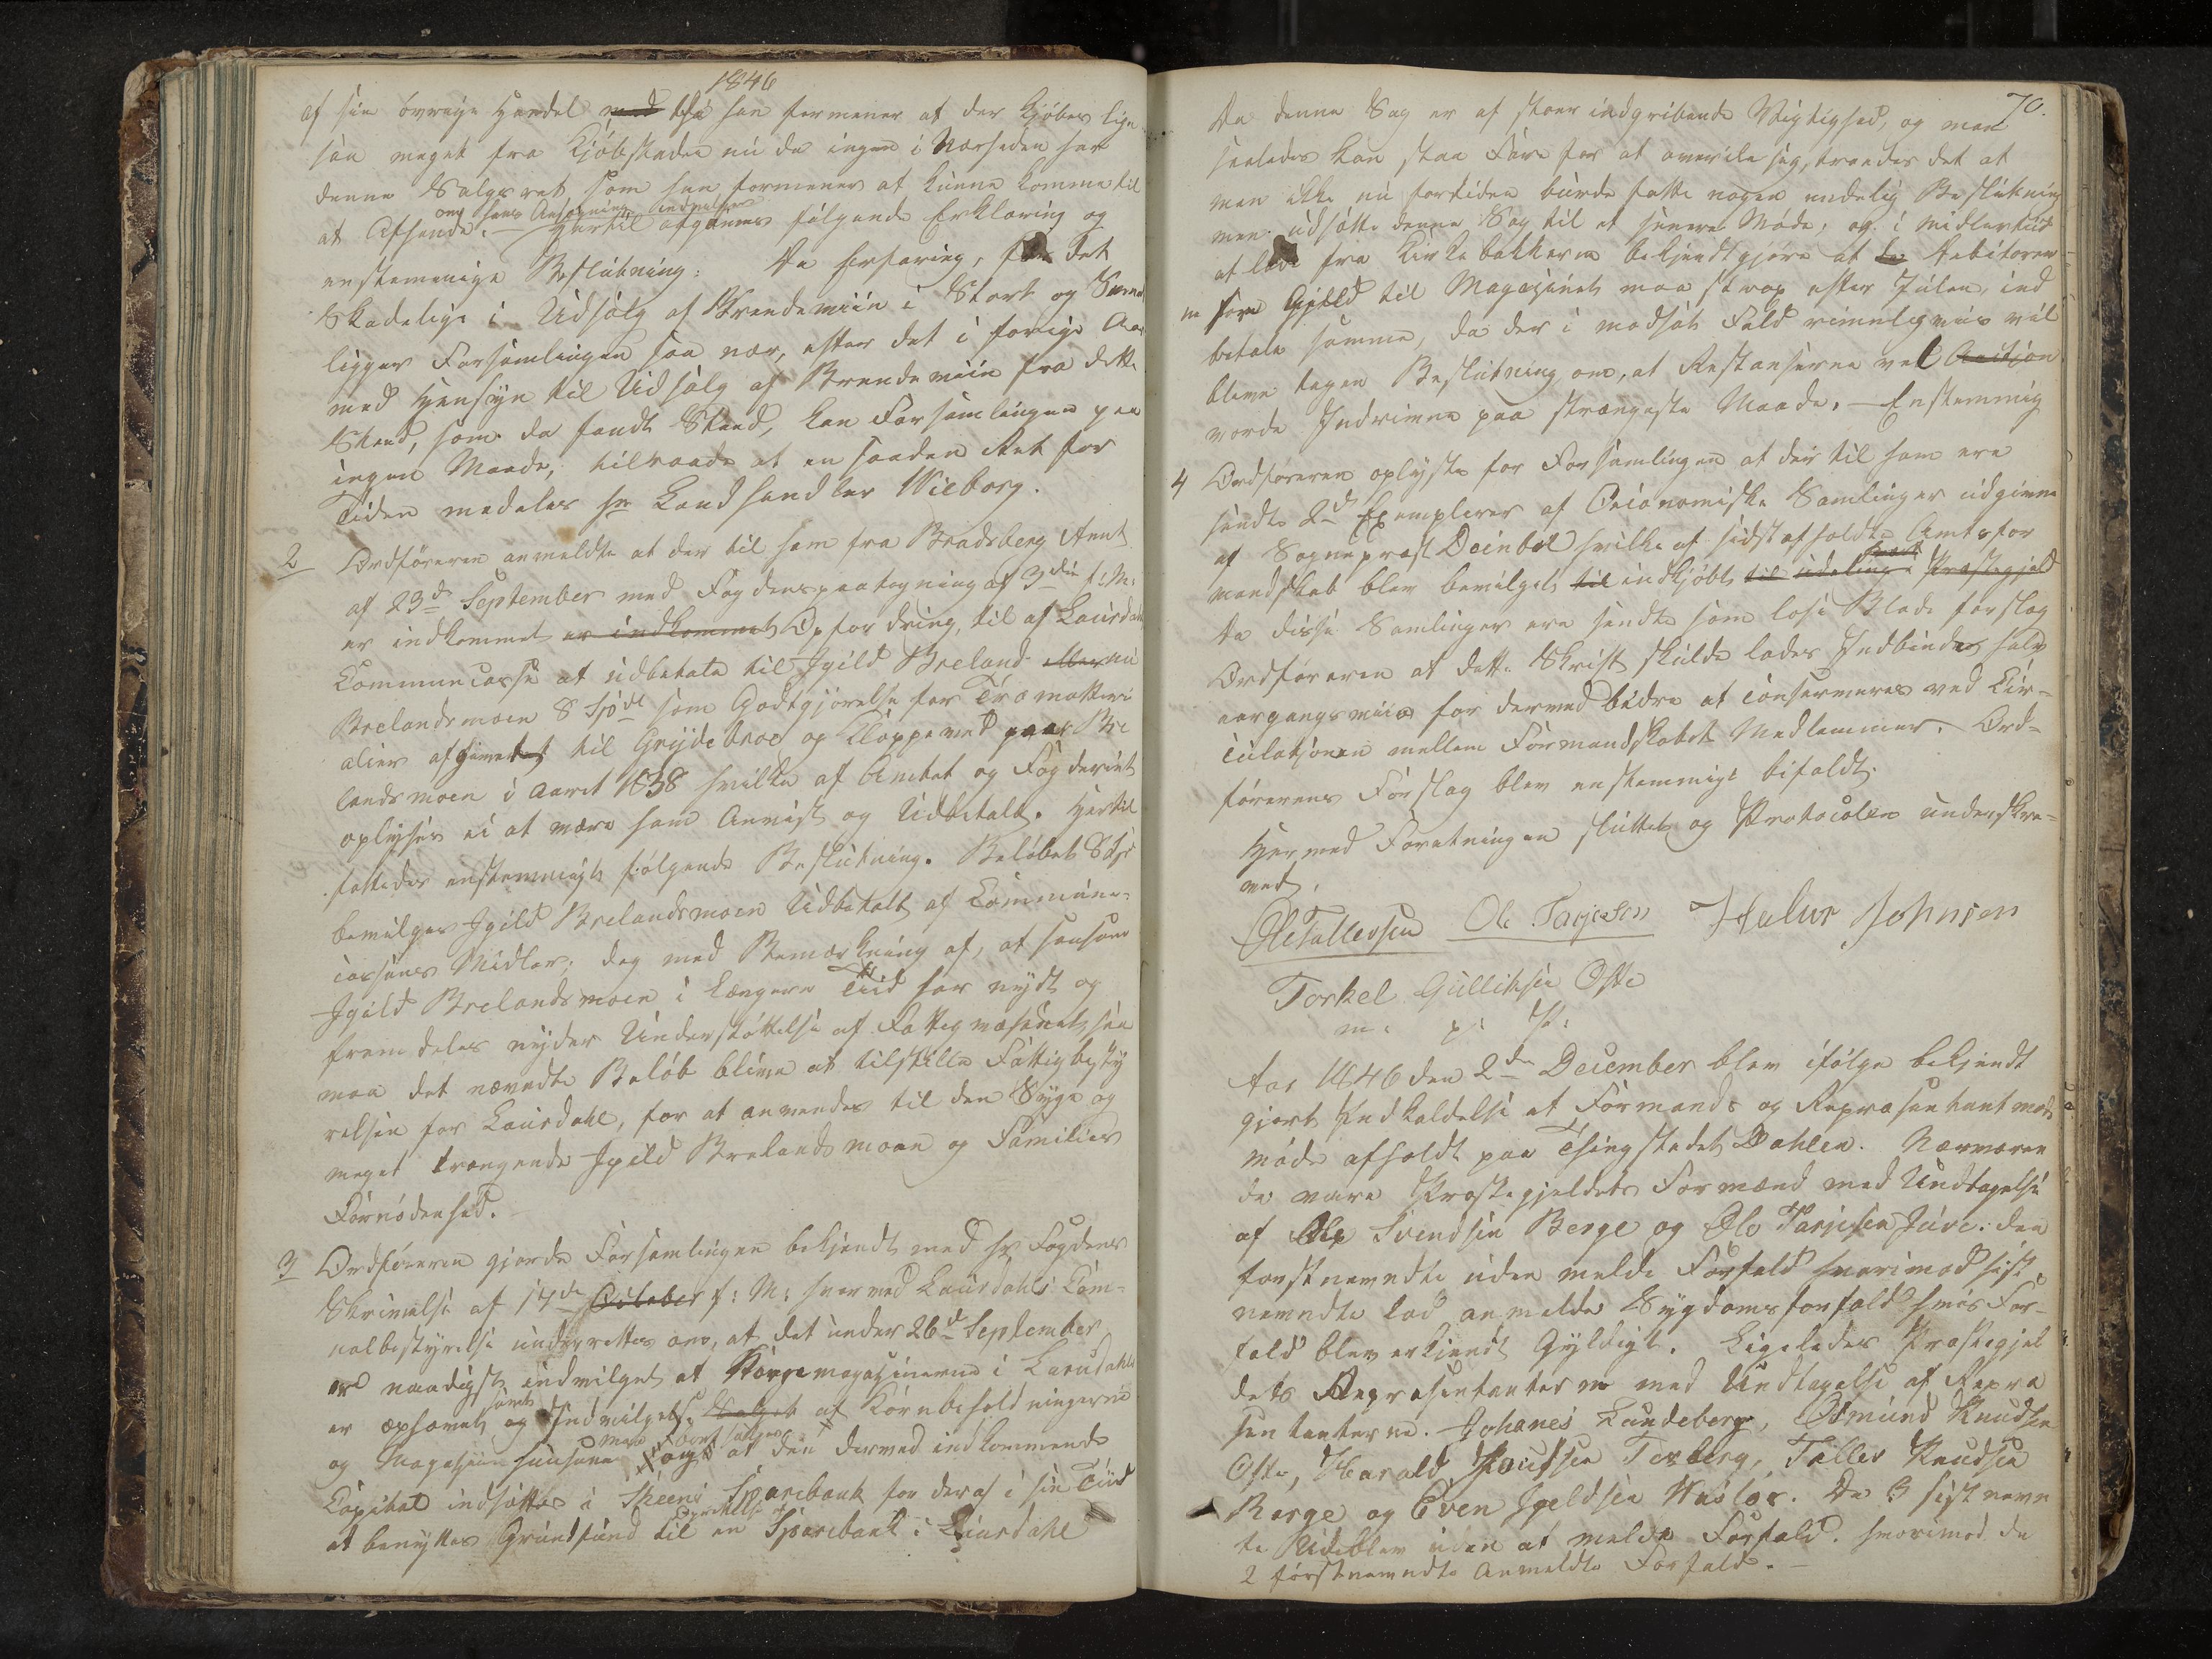 1846
af sin øvrige Handel med da han formener at der kjøbes lige
saa meget fra Kjøbstaden nu da ingen i Nærheden har
denne Salgsret som han formener at kunne komme til
om hans Ansøgning indvilges
at Afsende. — Hertil afgaves følgende Erklæring og
enstemmige Beslutning: Da Erfaring, for det
Skadelige i Udsalg af Brændeviin i Stort og Smaat
ligger Forsamlingen saa nær, efter det i forrige Aar
med Hensyn til Udsalg af Brændeviin fra dette
Sted, som da fandt Sted, kan Forsamlingen paa
ingen Maade, tilraade at en saadan Ret for
Tiden meddeles Hr Landhandler Wieborg.
2 Ordføreren anmeldte at der til ham fra Bradsberg Amt
af 23d September med Fogdens paategning af 3die f: M:
er indkommet er indkommet Opfordring, til af Laurdahls
Communecasse at udbetale til Igild Breland eller nu
Brelandsmoen 8 Spd som Godtgjørelse for Træmatteri
alier afgivet til Grydebroe og Kloppeved paa Bre
landsmoen i Aaret 1838 hvilke af Amtet og Fogderiet
oplyses ei at være ham Anvist og Udbetalt. Hertil
fattedes enstemmigt følgende Beslutning. Beløbet 8 Spd
bevilges Igild Brelandsmoen Udbetalt af Commune-
cassens Midler; dog med Bemærkning af, at saasom
Igild Brelandsmoen i Længere Tiid har nydt og
fremdeles nyder Understøttelse af Fattigvæsenet saa
maa det nævndte Beløb blive at tilstille Fattigbesty
relsen for Laurdahl, for at anvendes til den Syge og
meget trængende Igild Brelandsmoen og Families
Fornødenhed.
3 Ordføreren gjorde Forsamlingen bekjendt med Hr Fogdens
Skrivelse af 14de October f: M: hvorved Laurdahls Com-
nalbestyrelse underrettes om, at det under 26d September
er naadigst indvilget at Kornmagazinerne i Laurdahl
samt
er ophævet og Indvilget Salget af Kornbeholdningerne
og Magasiin husene og at den derved indkommende
Capital indsættes i Skeens Sparebank for deraf i sin Tiid
Oprettelse af
at benyttes Grundfond til en Sparebank i Laurdahl
70.
Da denne Sag er af stoer indgribende Vigtighed, og man
saaledes kan staa Fare for at overile sig, troedes det at
man ikke nu fortiden burde fatte nogen endelig Beslutning
men udsætte denne Sag til et senere Møde, og i midlertiid
at lade fra Kirkebakkerne bekjendtgjøre at de Debitorer
som Gjeld til Magazinet maa strax efter Julen, ind
betale samme, da der i modsat Fald rimeligviis vil
blive tagen Beslutning om, at Restanserne ved Auctjon
vorde Inddrivne paa strængeste Maade. — Enstemmig
4 Ordføreren oplyste for Forsamlingen at der til ham ere
sendte 2d Exemplarer af Oeconomiske Samlinger udgivne
af Sogneprest Deinbol hvilke af sidst afholdte Amtsfor
mandskab blev bevilget til indkjøbt til udeling i Præstegjeld
Da disse Samlinger ere sendte som løse Blade foreslog
Ordføreren at dette Skrift skulde lades Indbinde halv
aargangsviis for dermed bedre at conserveres ved Cir-
culatjonen mellem Formandskabets Medlemmer. Ord-
førerens Forslag blev enstemmigt bifaldt.
Hermed Foretningen sluttet og Protocolen underskre-
vet.
Ole Tallevsen Ole Tarjesen Halvor Johnsen
Torkel Gulliksen Ofte
m: p: P:
Aar 1846 den 2den December blev ifølge bekjendt
gjort Indkaldelse et Formands og Repræsentant
møde afholdt paa Thingstedet Dahlen. Nærværen
de vare Præstegjeldets Formænd med Undtagelse
af Ole Svendsen Berge og Ole Tarjesen Juve. den
førstnevndte uden melde Forfald hvorimod sist
nevndte lod anmelde Sygdomsforfald hvis For-
fald blev erkjendt Gyldigt. Ligeledes Præstegjel
dets Repræsentanterne med Undtagelse af Repræ
sentanterne. Johanes Lundeberg, Osmund Knudsen
Ofte, Harald Knudsen Texleberg, Tallev Knudsen
Berge og Even Igeldsen . De 3 sist nevn
te Udeblev uden at melde Forfald. hvorimod de
2 førstnevndte Anmeldte Forfald. —